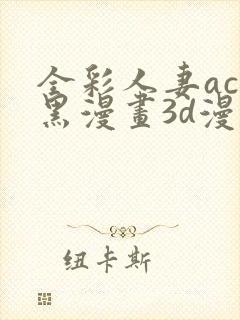 全彩人妻ac
黑漫畫3d漫
纽卡斯